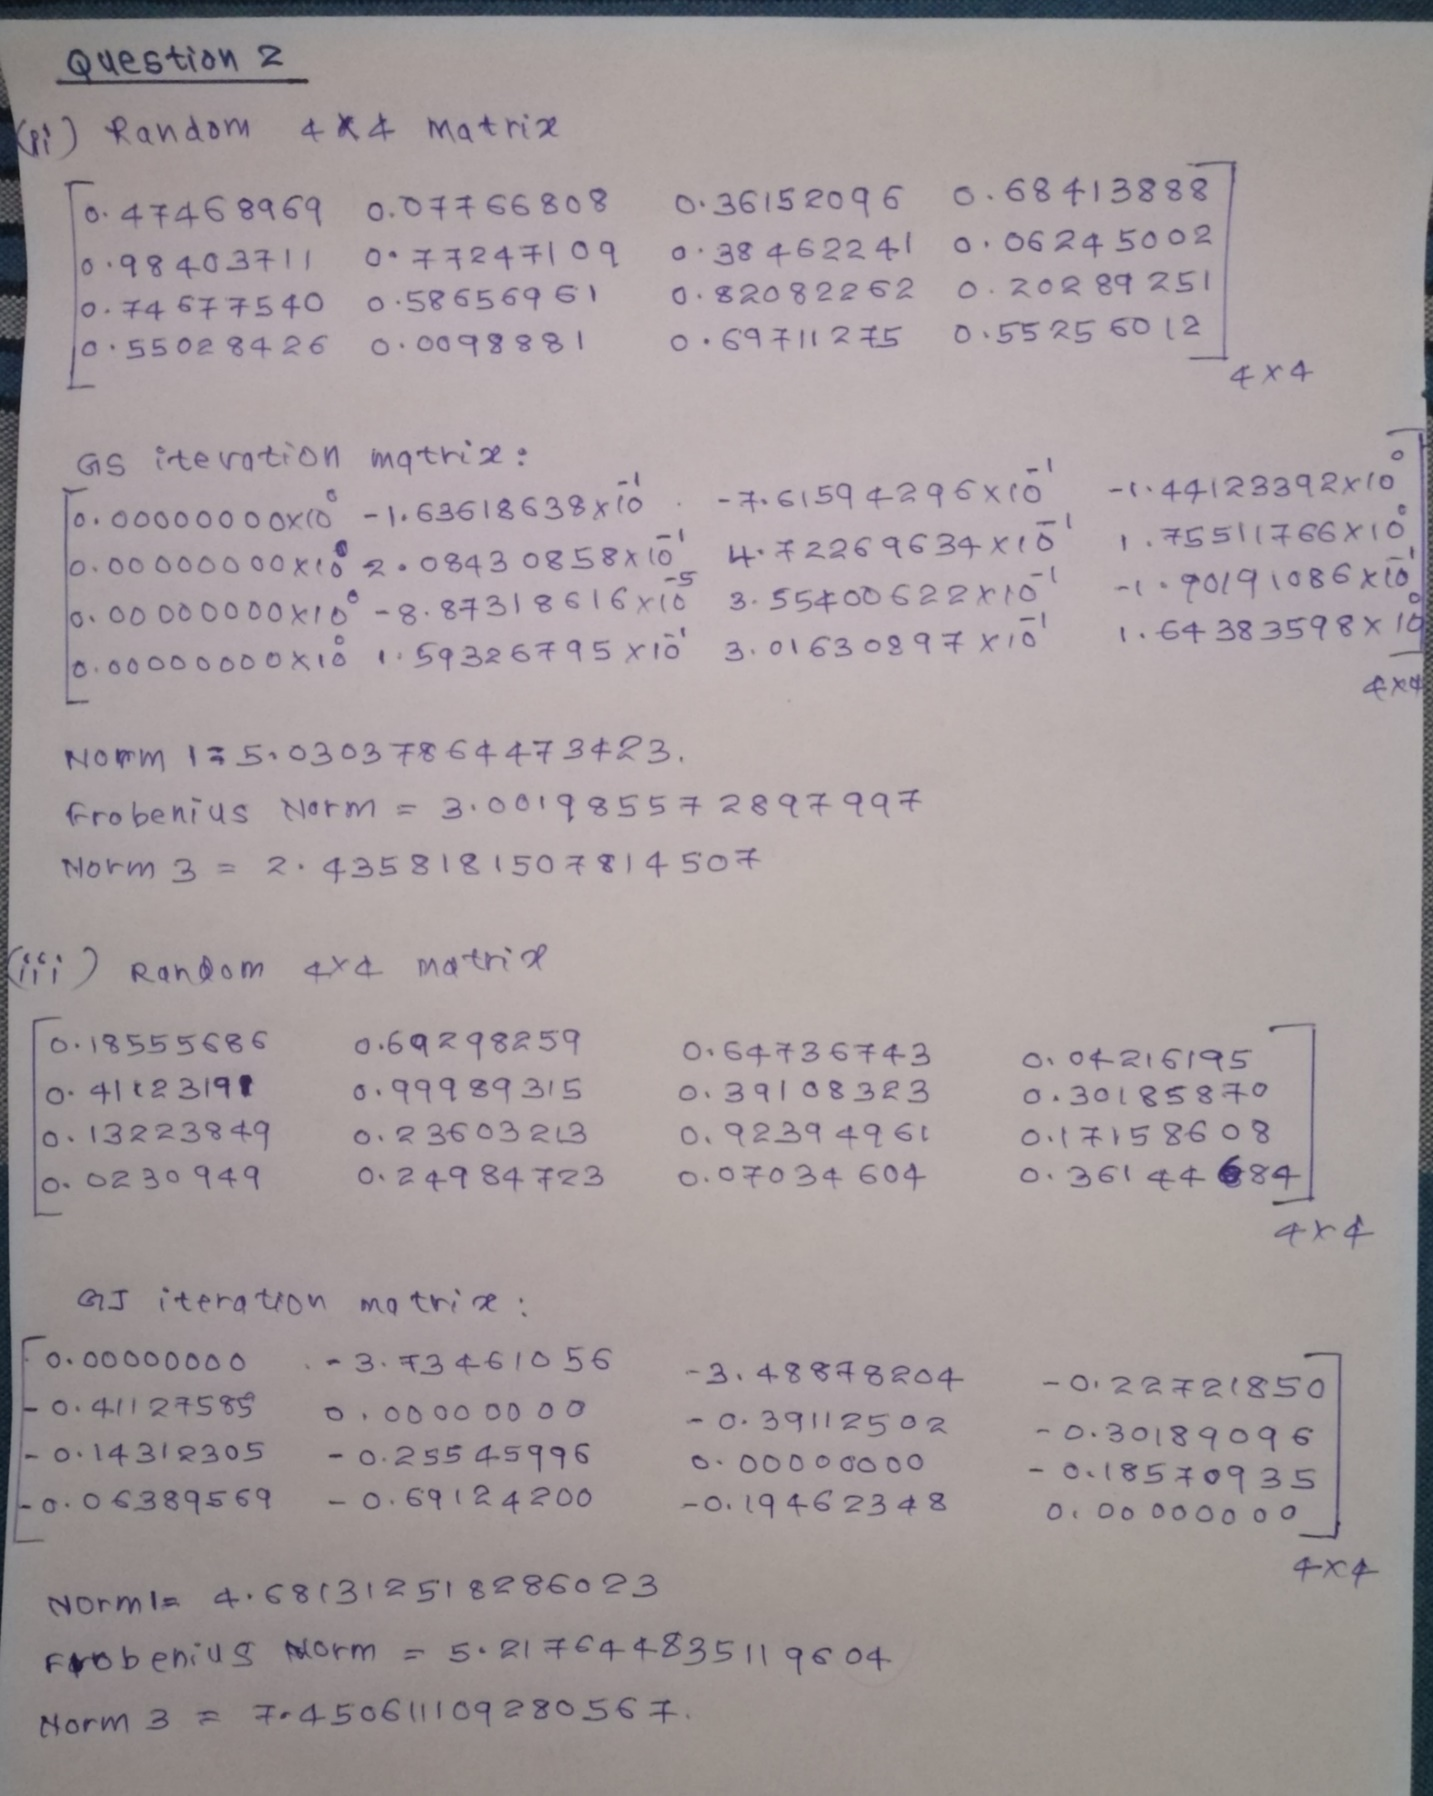 Question 2
(ii) Random 4x4 matrix
0.47468969 0.07766808 0.36152096 0.68413888
0.98403711 0.77247109 0.38462241 0.06245002
0.74677540 0.58656961 0.82082262 0.20289251
0.55028426 0.0098881 0.69711275 0.55256012
4x4
GS iteration matrix:
0.00000000x10⁰ -1.63618638x10⁻¹ -7.61594296x10⁻¹ -1.44123392x10⁰
0.00000000x10⁰ 2.08430858x10⁻¹ 4.72269634x10⁻¹ 1.75511766x10⁰
0.00000000x10⁰ -8.87318616x10⁻⁵ 3.55400622x10⁻¹ -1.90191086x10⁻¹
0.00000000x10⁰ 1.59326795x10⁻¹ 3.01630897x10⁻¹ 1.64383598x10⁰
4x4
Norm 1 = 5.030378644473423.
Frobenius Norm = 3.001985572897997
Norm 3 = 2.4358181507814507
(iii) Random 4x4 matrix
0.18555686 0.69298259 0.64736743 0.04216195
0.41123191 0.99989315 0.39108323 0.30185870
0.13223849 0.23603213 0.92394961 0.17158608
0.0230949 0.24984723 0.07034604 0.36144684
4x4
GJ iteration matrix:
0.00000000 -3.73461056 -3.48878204 -0.22721850
-0.41127585 0.00000000 -0.39112502 -0.30189096
-0.14312305 -0.25545996 0.00000000 -0.18570935
-0.06389569 -0.69124200 -0.19462348 0.00000000
4x4
Norm 1= 4.681312518286023
Frobenius Norm = 5.2176448351119604
Norm 3 = 7.450611109280567.